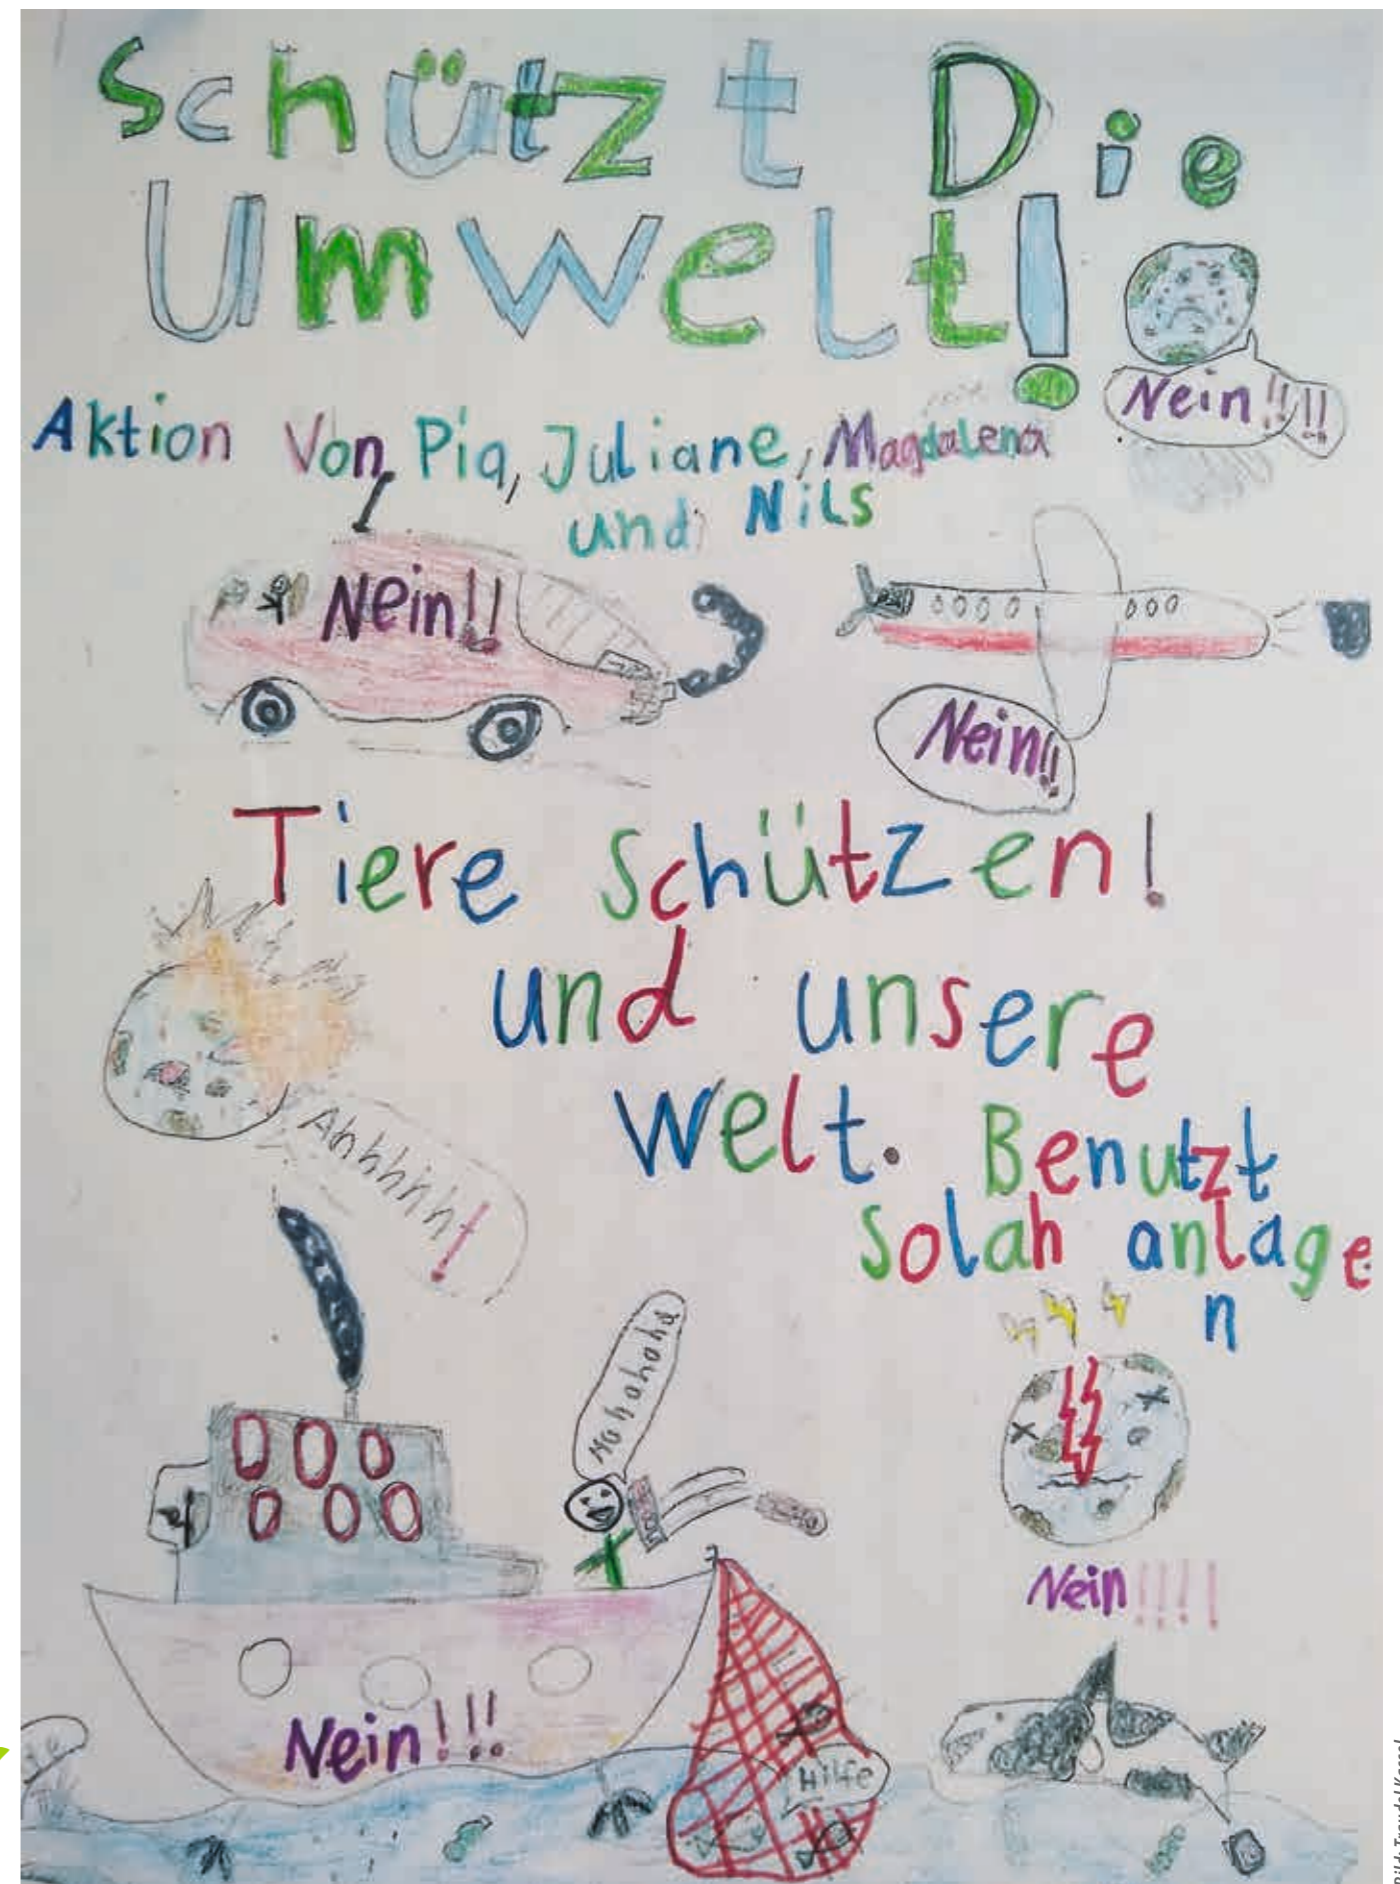 Schützt Die
Umwelt!
Nein!!!!
Aktion Von Pia, Juliane, Magdalena
und Nils
Nein!!
Nein!!
Tiere schützen!
und unsere
Welt. Benutzt
Solah anlage
n
Ahhhhh!
Mahahaha
Nein!!!!
Nein!!!
Hilfe